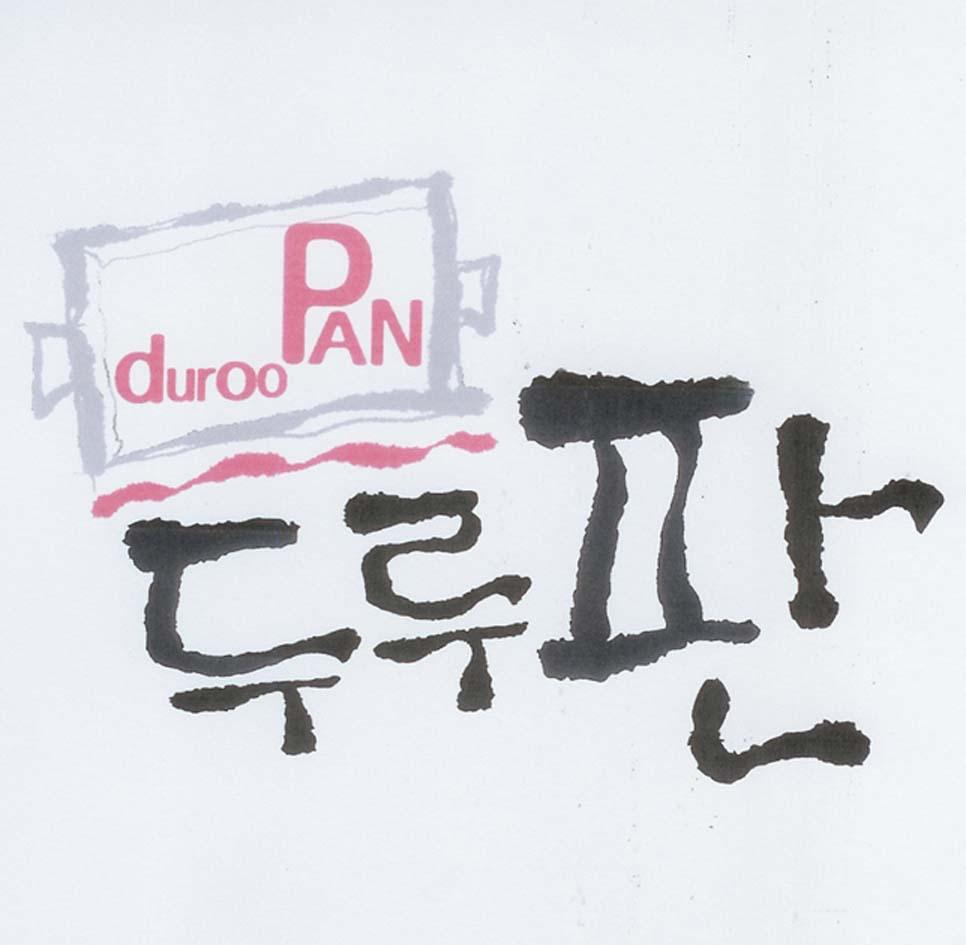 duroo PAN
두루판